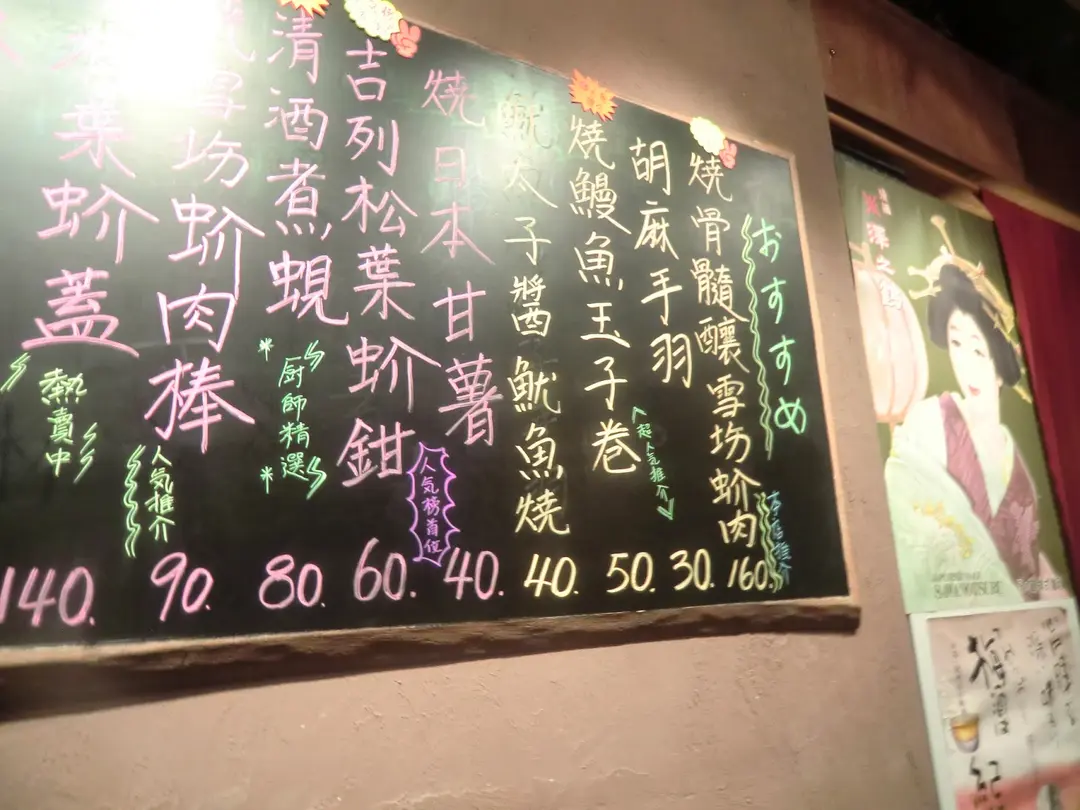 おすすめ
燒骨髓釀雪場蚧肉
本店推介
160.
胡麻手羽
30.
燒鰻魚玉子卷
超人気推介
50.
魷太子醬魷魚燒
40.
燒日本甘薯
40.
吉列松葉蚧鉗
人気榜首位
60.
清酒煮蜆
厨師精選
80.
場蚧肉棒
人気推介
90.
葉蚧蓋
熱賣中
140.
澤之鶴
SAWANOTSURU
梅酒
紀